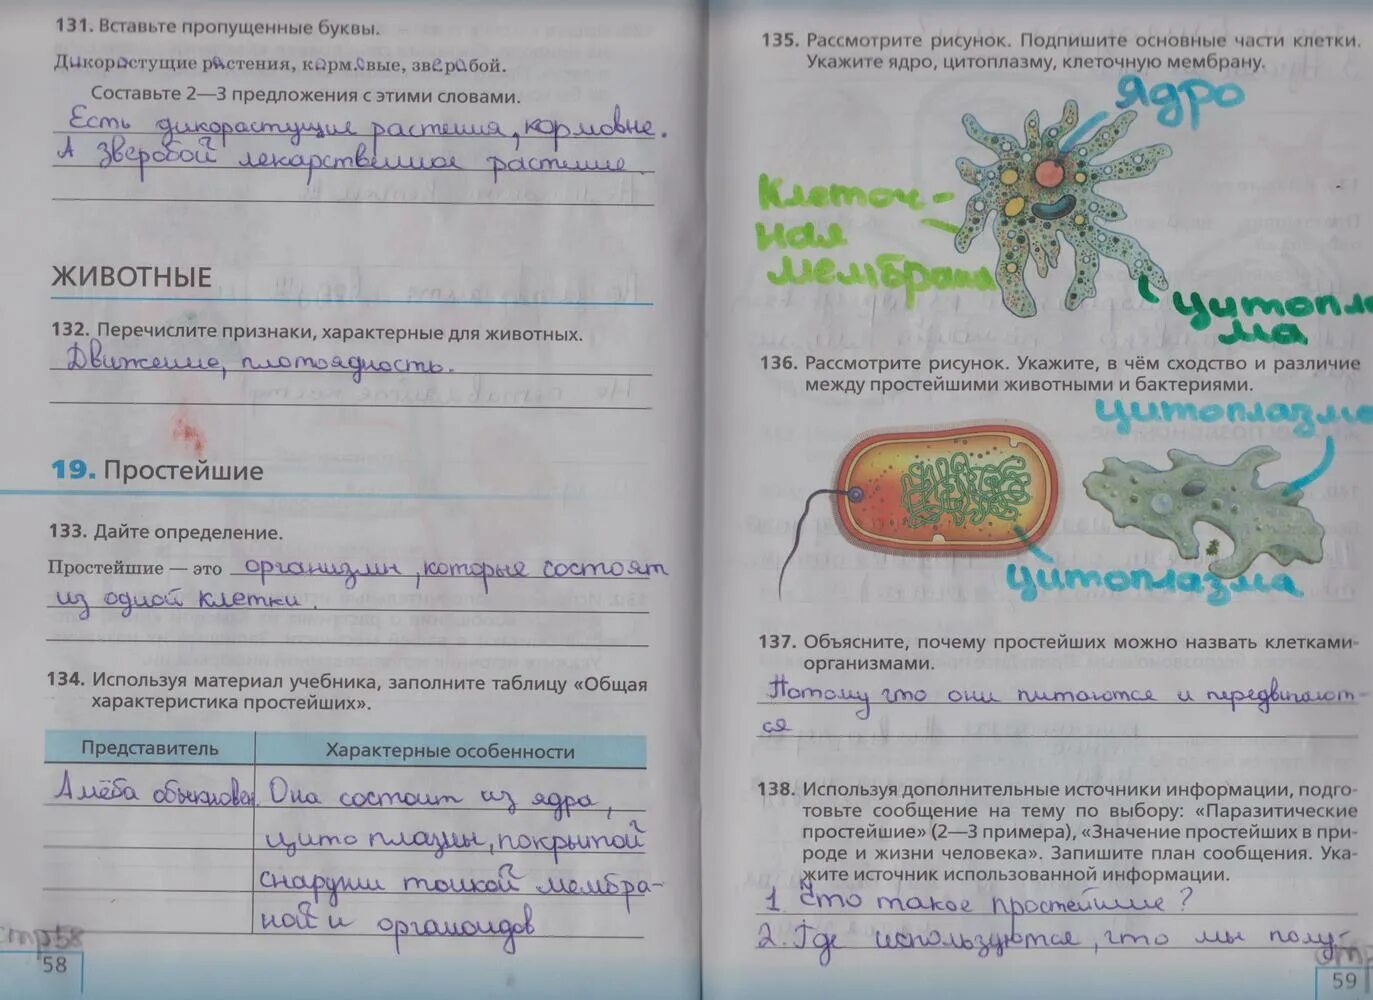 131. Вставьте пропущенные буквы.
Дикорастущие растения, кормовые, зверобой.
Составьте 2—3 предложения с этими словами.
Есть дикорастущие растения, кормовые.
А зверобой лекарственное растение
ЖИВОТНЫЕ
132. Перечислите признаки, характерные для животных.
Движение, плотоядность.
19. Простейшие
133. Дайте определение.
Простейшие — это организмы, которые состоят
из одной клетки.
134. Используя материал учебника, заполните таблицу «Общая
характеристика простейших».
Представитель Характерные особенности
Амёба обыкновен Она состоит из ядра,
цитоплазмы, покрытой
снаружи тонкой мембра-
ной и органоидов
стр58
58
135. Рассмотрите рисунок. Подпишите основные части клетки.
Укажите ядро, цитоплазму, клеточную мембрану.
Ядро
Клеточ-
ная
мембрана
Цитопла
ма
136. Рассмотрите рисунок. Укажите, в чём сходство и различие
между простейшими животными и бактериями.
цитоплазма
цитоплазма
137. Объясните, почему простейших можно назвать клетками-
организмами.
Потому что они питаются и передвигают-
ся
138. Используя дополнительные источники информации, подго-
товьте сообщение на тему по выбору: «Паразитические
простейшие» (2—3 примера), «Значение простейших в при-
роде и жизни человека». Запишите план сообщения. Ука-
жите источник использованной информации.
1. Что такое простейшие?
2. Где используются, что мы полу-
стр
59